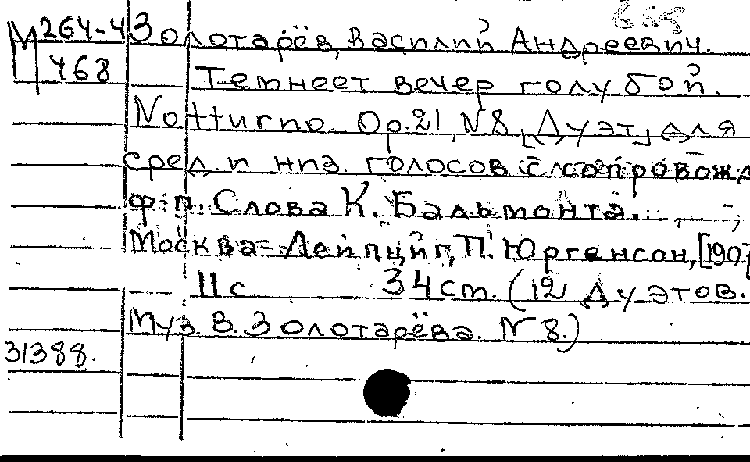 М 264-4
468
Золотарёв, Василий Андреевич.
Темнеет вечер голубой.
Notturno. Op.21, N8, [Дуэт] для
сред. и низ. голосов с сопровожд.
ф-п. Слова К. Бальмонта.
Москва-Лейпциг, П. Юргенсон, [1907
11 с. 34 см. (12 Дуэтов.
Муз. В. Золотарёва. N 8.)
31388.